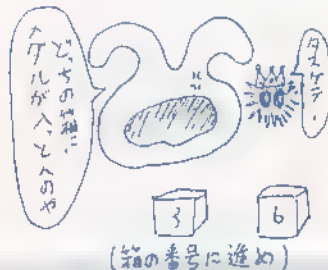 どっちの箱に
メダルが入っとんのや
タスケテ〜
3
6
(箱の番号に進め)